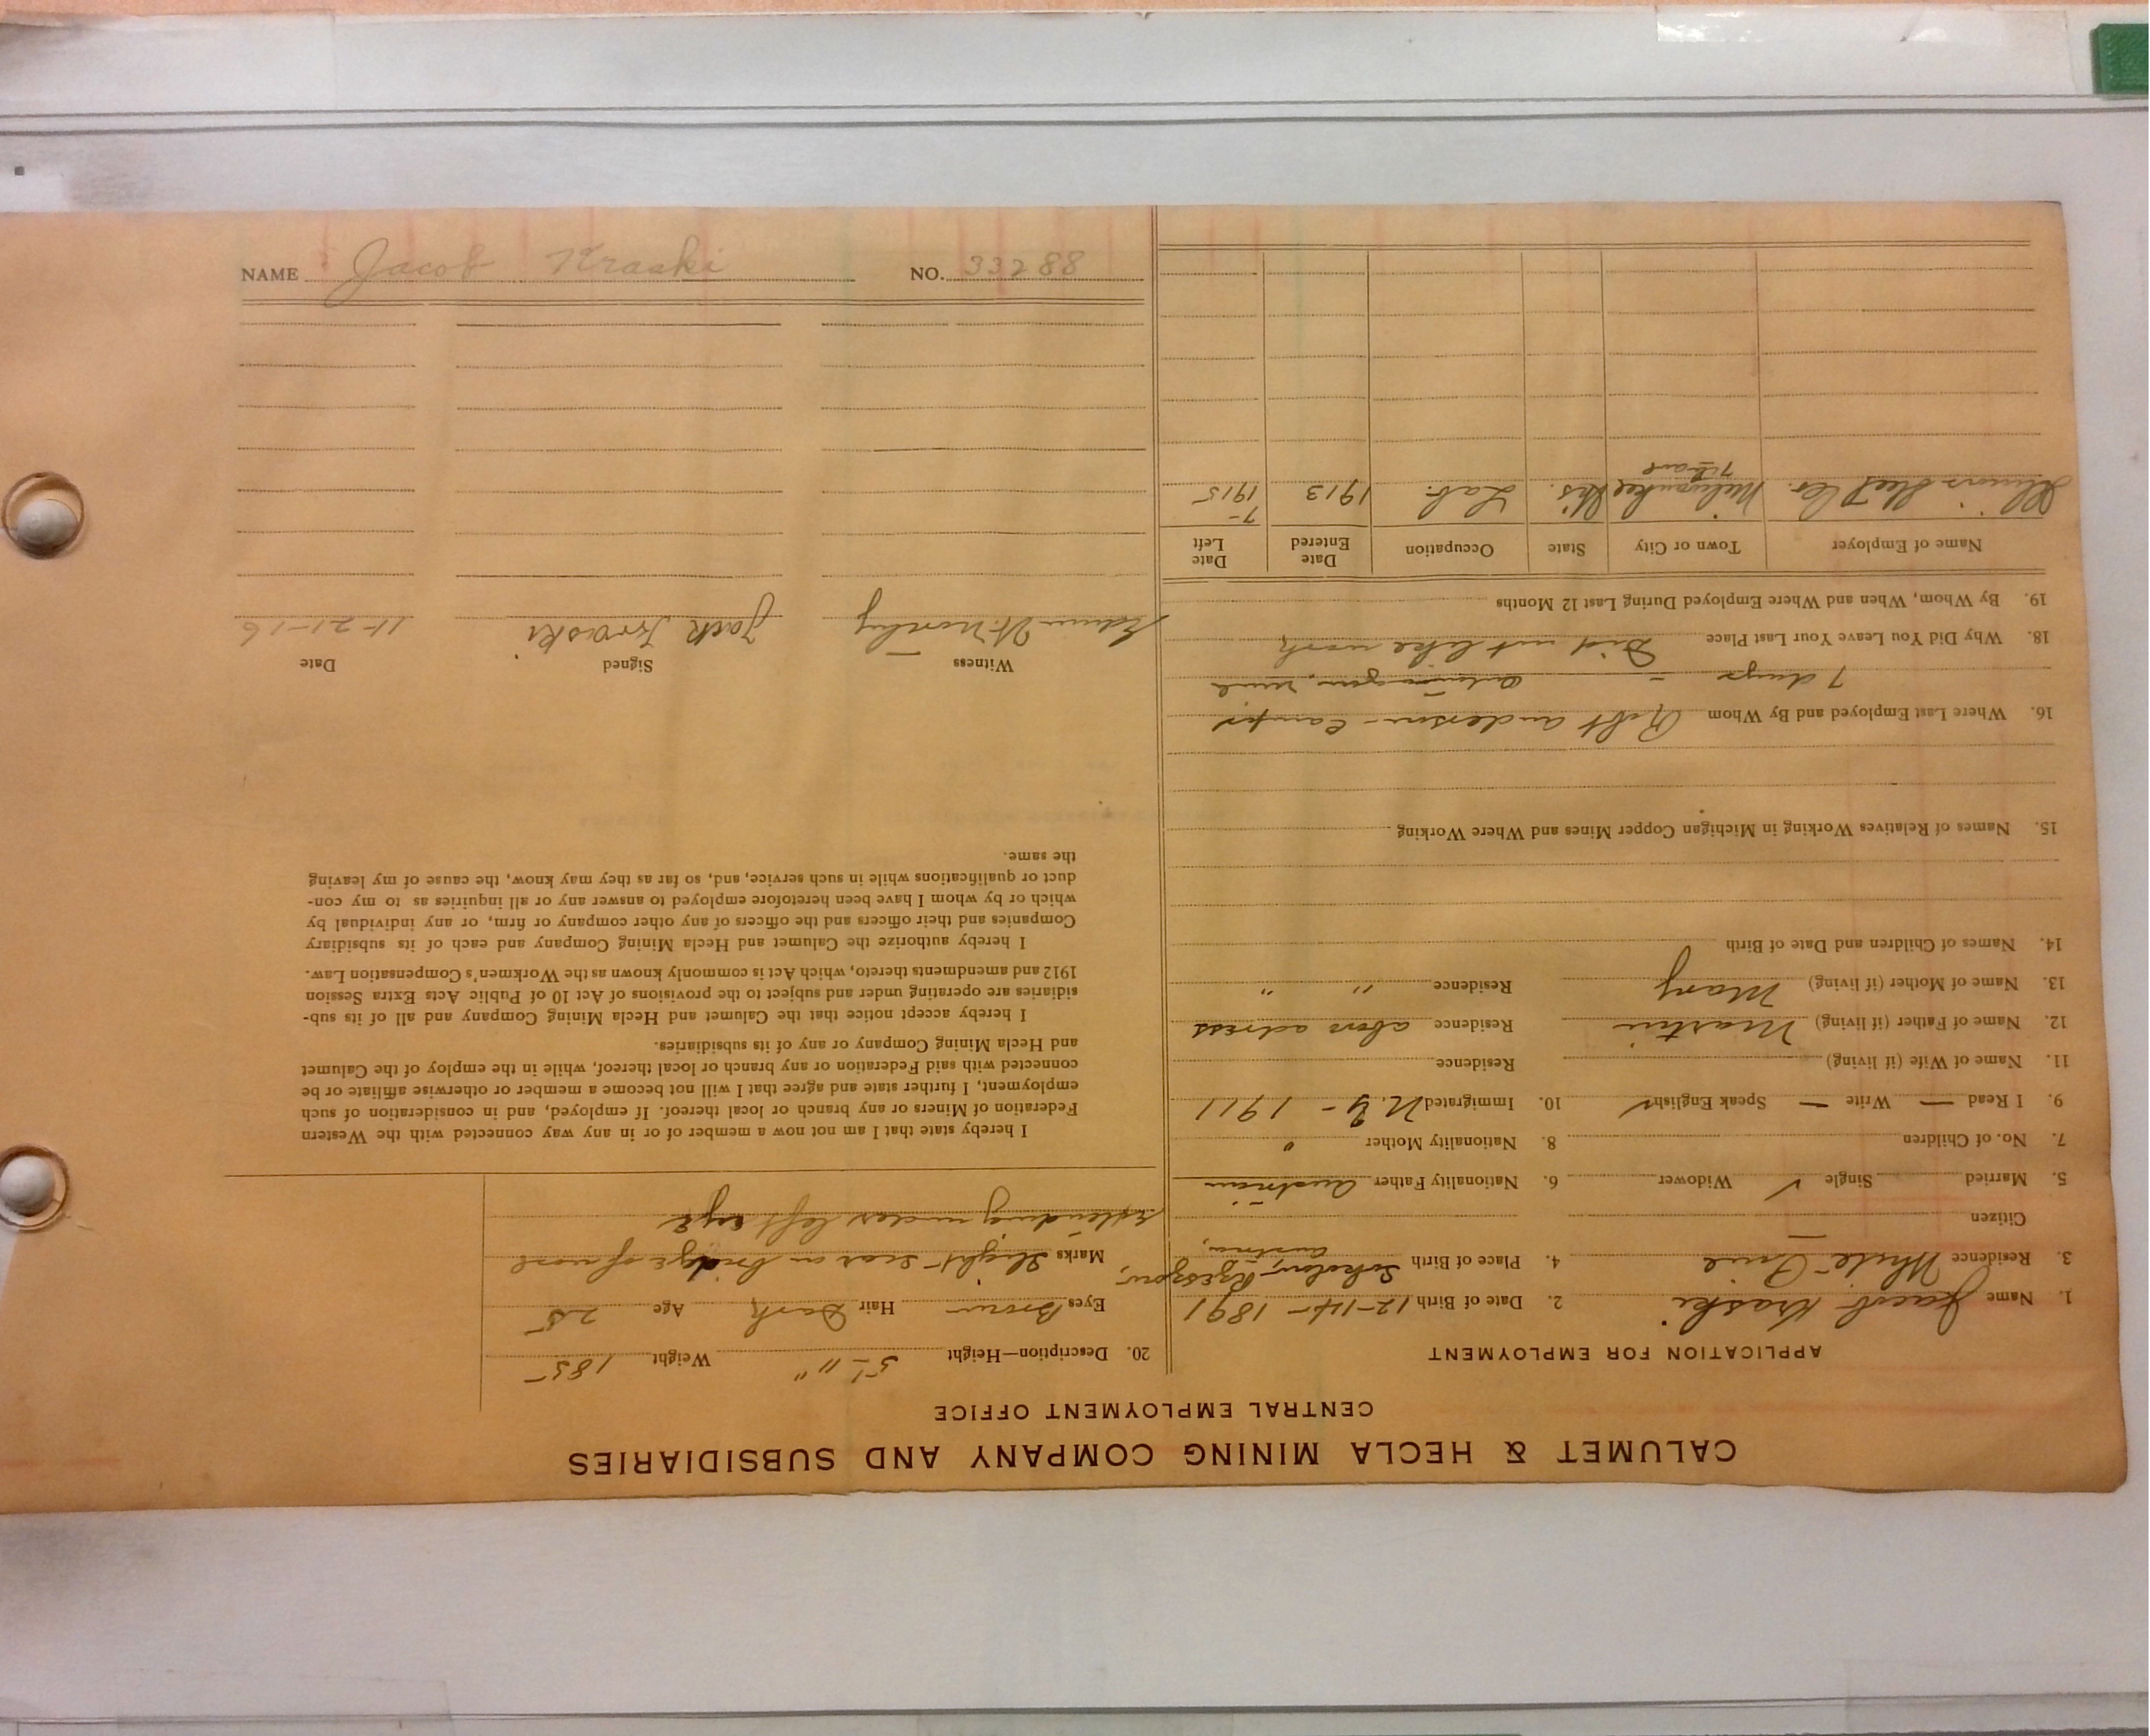 CALUMET & HECLA MINING COMPANY AND SUBSIDIARIES
CENTRAL EMPLOYMENT OFFICE
APPLICATION FOR EMPLOYMENT
1. Name Jacob Kraski 2. Date of Birth 12-14-1891
3. Residence White Pine 4. Place of Birth Sokolow, Rzeszow,
Austria,
Citizen
5. Married Single ✓ Widower 6. Nationality Father Austrian
7. No. of Children 8. Nationality Mother "
9. I Read — Write — Speak English ✓ 10. Immigrated N.Y- 1911
11. Name of Wife (if living) Residence
12. Name of Father (if living) Martin Residence abov adress
13. Name of Mother (if living) Mary Residence " "
14. Names of Children and Date of Birth
15. Names of Relatives Working in Michigan Copper Mines and Where Working
16. Where Last Employed and By Whom Robt anderson - Camps
7 days - mine
18. Why Did You Leave Your Last Place Did not like work
19. By Whom, When and Where Employed During Last 12 Months
Name of Employer Town or City State Occupation Date Entered Date Left
Illinois Steel Co. Milwaukee Wis. Lab. 1913 7-1915
20. Description—Height 5'-11" Weight 185
Eyes Brown Hair Dark Age 25
Marks Slight scar on bridge of nose
extending under left eye
I hereby state that I am not now a member of or in any way connected with the Western
Federation of Miners or any branch or local thereof. If employed, and in consideration of such
employment, I further state and agree that I will not become a member or otherwise affiliate or be
connected with said Federation or any branch or local thereof, while in the employ of the Calumet
and Hecla Mining Company or any of its subsidiaries.
I hereby accept notice that the Calumet and Hecla Mining Company and all of its sub-
sidiaries are operating under and subject to the provisions of Act 10 of Public Acts Extra Session
1912 and amendments thereto, which Act is commonly known as the Workmen's Compensation Law.
I hereby authorize the Calumet and Hecla Mining Company and each of its subsidiary
Companies and their officers and the officers of any other company or firm, or any individual by
which or by whom I have been heretofore employed to answer any or all inquiries as to my con-
duct or qualifications while in such service, and, so far as they may know, the cause of my leaving
the same.
Witness Signed Date
Jack Kraski 11-21-16
NAME Jacob Kraski NO. 33288